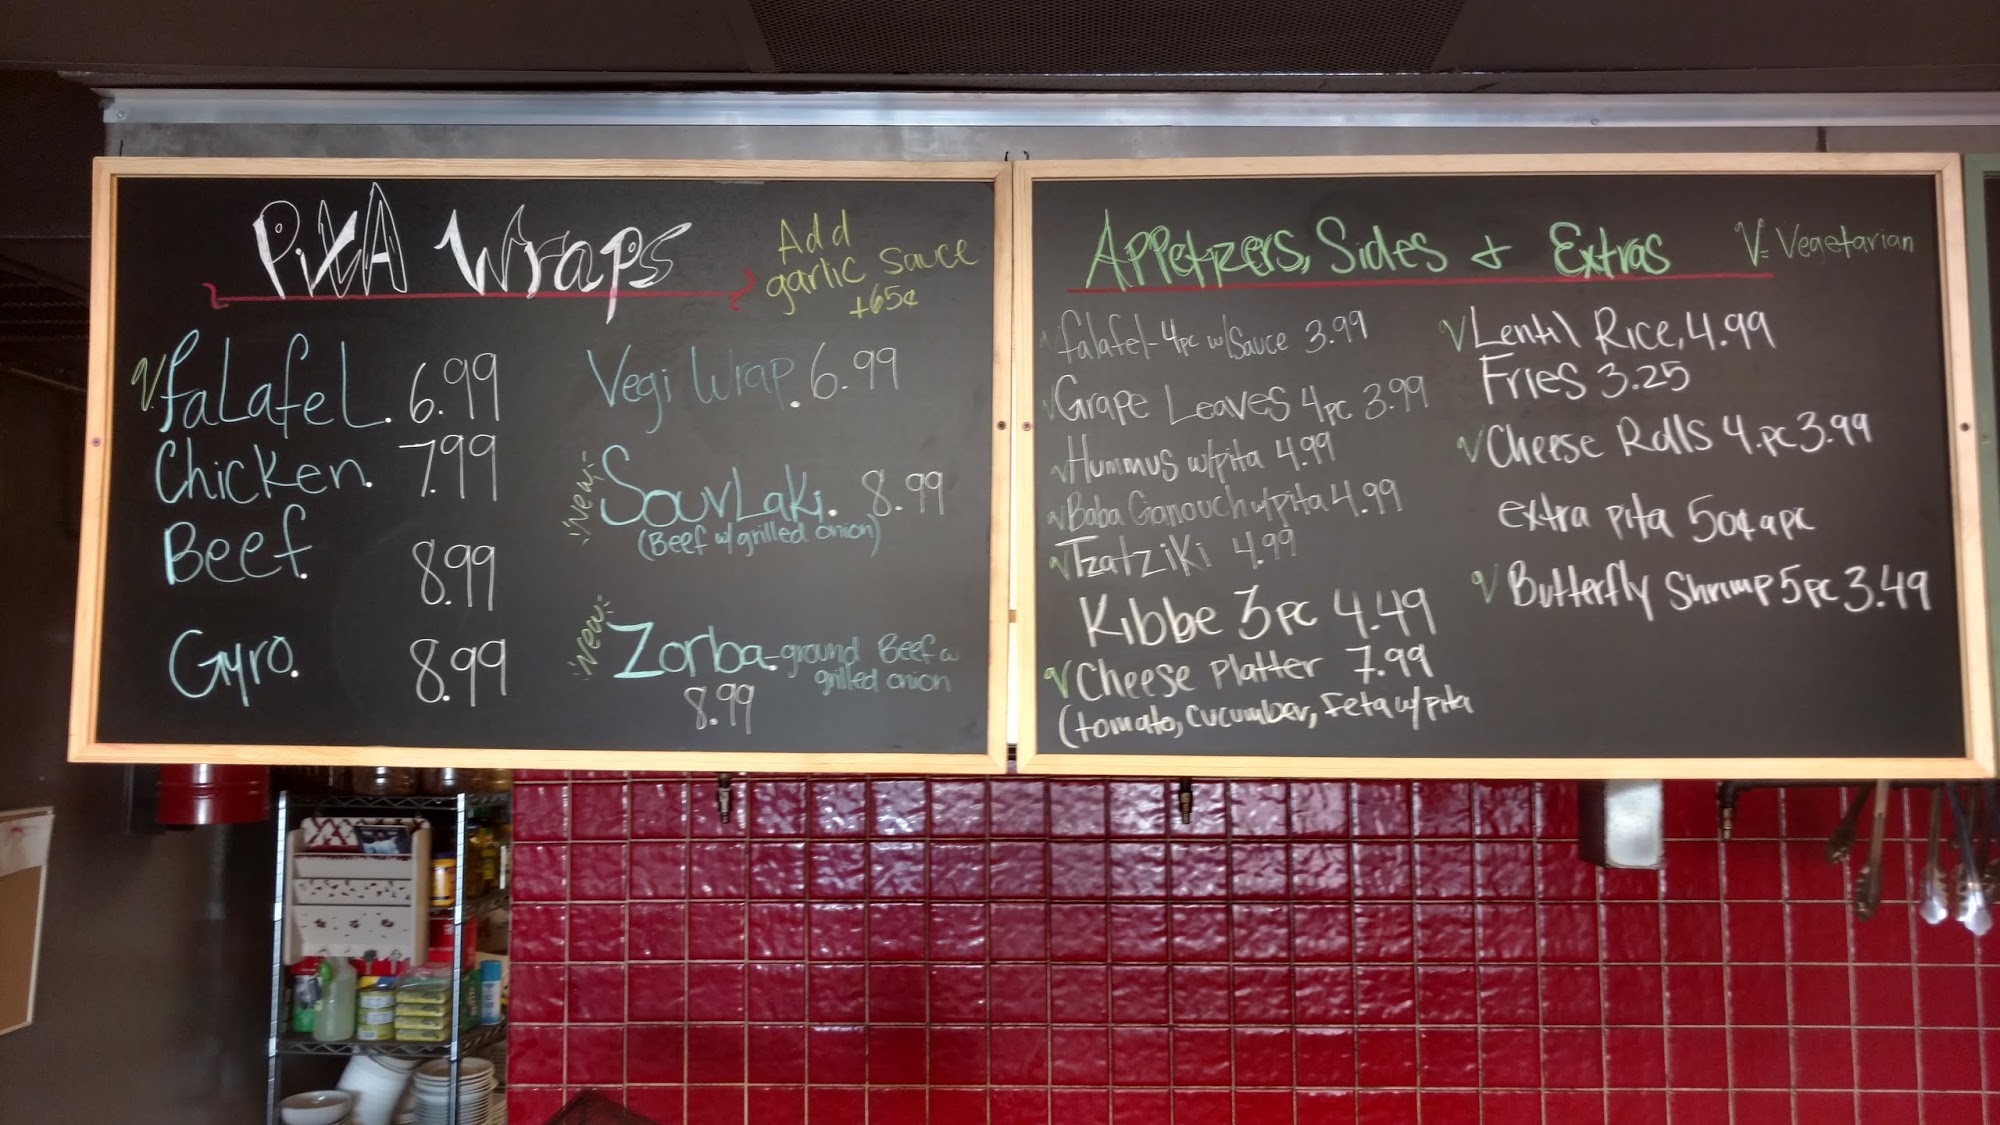 PitA Wraps
Add
garlic sauce
+65¢
V FaLafeL. 6.99
Chicken. 7.99
Beef. 8.99
Gyro. 8.99
Vegi Wrap. 6.99
New
SouvLaki. 8.99
(Beef w/ grilled onion)
New
Zorba-ground Beef w
grilled onion
8.99
Appetizers, Sides + Extras
V= Vegetarian
V falafel-4pc w/Sauce 3.99
V Grape Leaves 4pc 3.99
V Hummus w/pita 4.99
V Baba Ganouch w/pita 4.99
V Tzatziki 4.99
Kibbe 3pc 4.49
V Cheese Platter 7.99
(tomato, Cucumber, Feta w/ pita
V Lentil Rice, 4.99
Fries 3.25
V Cheese Rolls 4.pc 3.99
extra pita 50¢ a pc
V Butterfly Shrimp 5pc 3.49